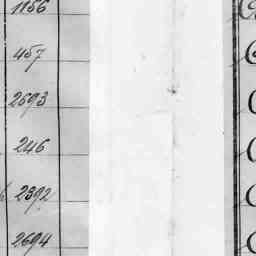 1156
457
2693
246
2392
2694